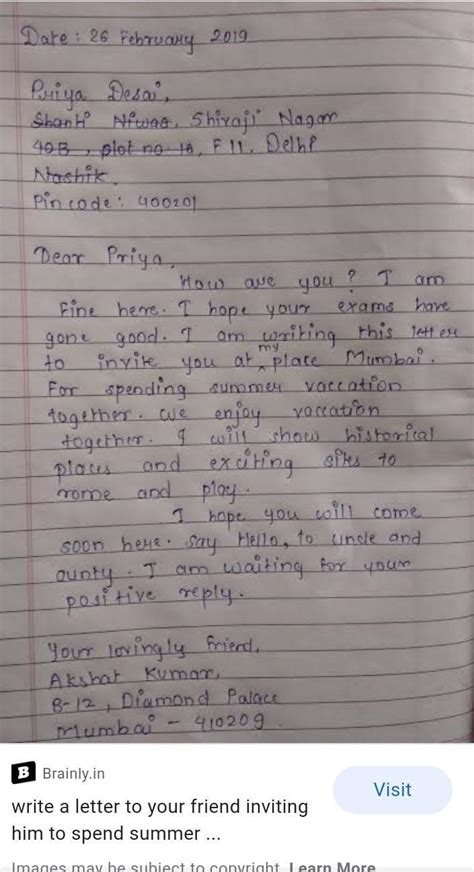 Date : 26 February 2019
Priya Desai,
Shanti Niwas, Shivaji Nagar
40B, plot no. 18, F 11, Delhi
Nashik.
Pincode : 400201
Dear Priya,
How are you ? I am
fine here. I hope your exams have
gone good. I am writing this letter
to invite you at my place Mumbai.
For spending summer vaccation
together. we enjoy vaccation
together. I will show historical
places and exciting sites to
rome and play.
I hope you will come
soon here. Say Hello, to uncle and
aunty. I am waiting for your
positive reply.
Your lovingly friend,
Akshat Kumar,
B-12, Diamond Palace
Mumbai - 410209.
B Brainly.in
Visit
write a letter to your friend inviting
him to spend summer ...
Images may be subject to copyright. Learn More